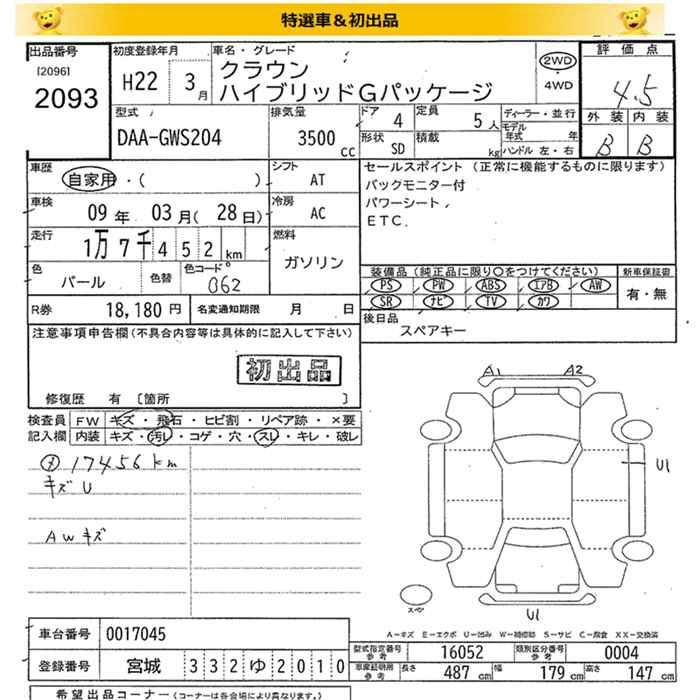 特選車＆初出品
出品番号 初度登録年月 車名・グレード 評価点
[2096]
2093 H22 3月 クラウン 2WD
ハイブリッドGパッケージ 4WD 4.5
型式 排気量 ドア 4 定員 5人 ディーラー・並行 外装 内装
DAA-GWS204 3500 CC 形状 SD 積載 kg モデル年式 年 B B
ハンドル 左・右
車歴 自家用・( ) シフト AT セールスポイント (正常に機能するものに限ります)
車検 09年 03月(28日) 冷房 AC バックモニター付
パワーシート
ETC
走行 1万7千452km 燃料 ガソリン
色 パール 色替 色コード 062 装備品(純正品に限り○をつけてください) 新車保証書
PS PW ABS エアB AW 有・無
SR ナビ TV カワ
R券 18,180円 名変通知期限 月 日 後日品
スペアキー
注意事項申告欄(不具合内容等は具体的に記入して下さい)
初出品
修復歴 有 [箇所 ]
検査員 FW キズ・飛石・ヒビ割・リペア跡・×要
記入欄 内装 キズ・汚レ・コゲ・穴・スレ・キレ・破レ
A1 A2
17456km
キズU U1
AWキズ
スペア
U1
A-キズ E-エクボ U-凹み W-補修跡 S-サビ C-腐食 XX-交換済
車台番号 0017045
型式指定番号 参考 16052 類別区分番号 参考 0004
登録番号 宮城 332ゆ2010 車庫証明用 参考 長さ 487cm 幅 179cm 高さ 147cm
希望出品コーナー(コーナーは各会場により異なります。)